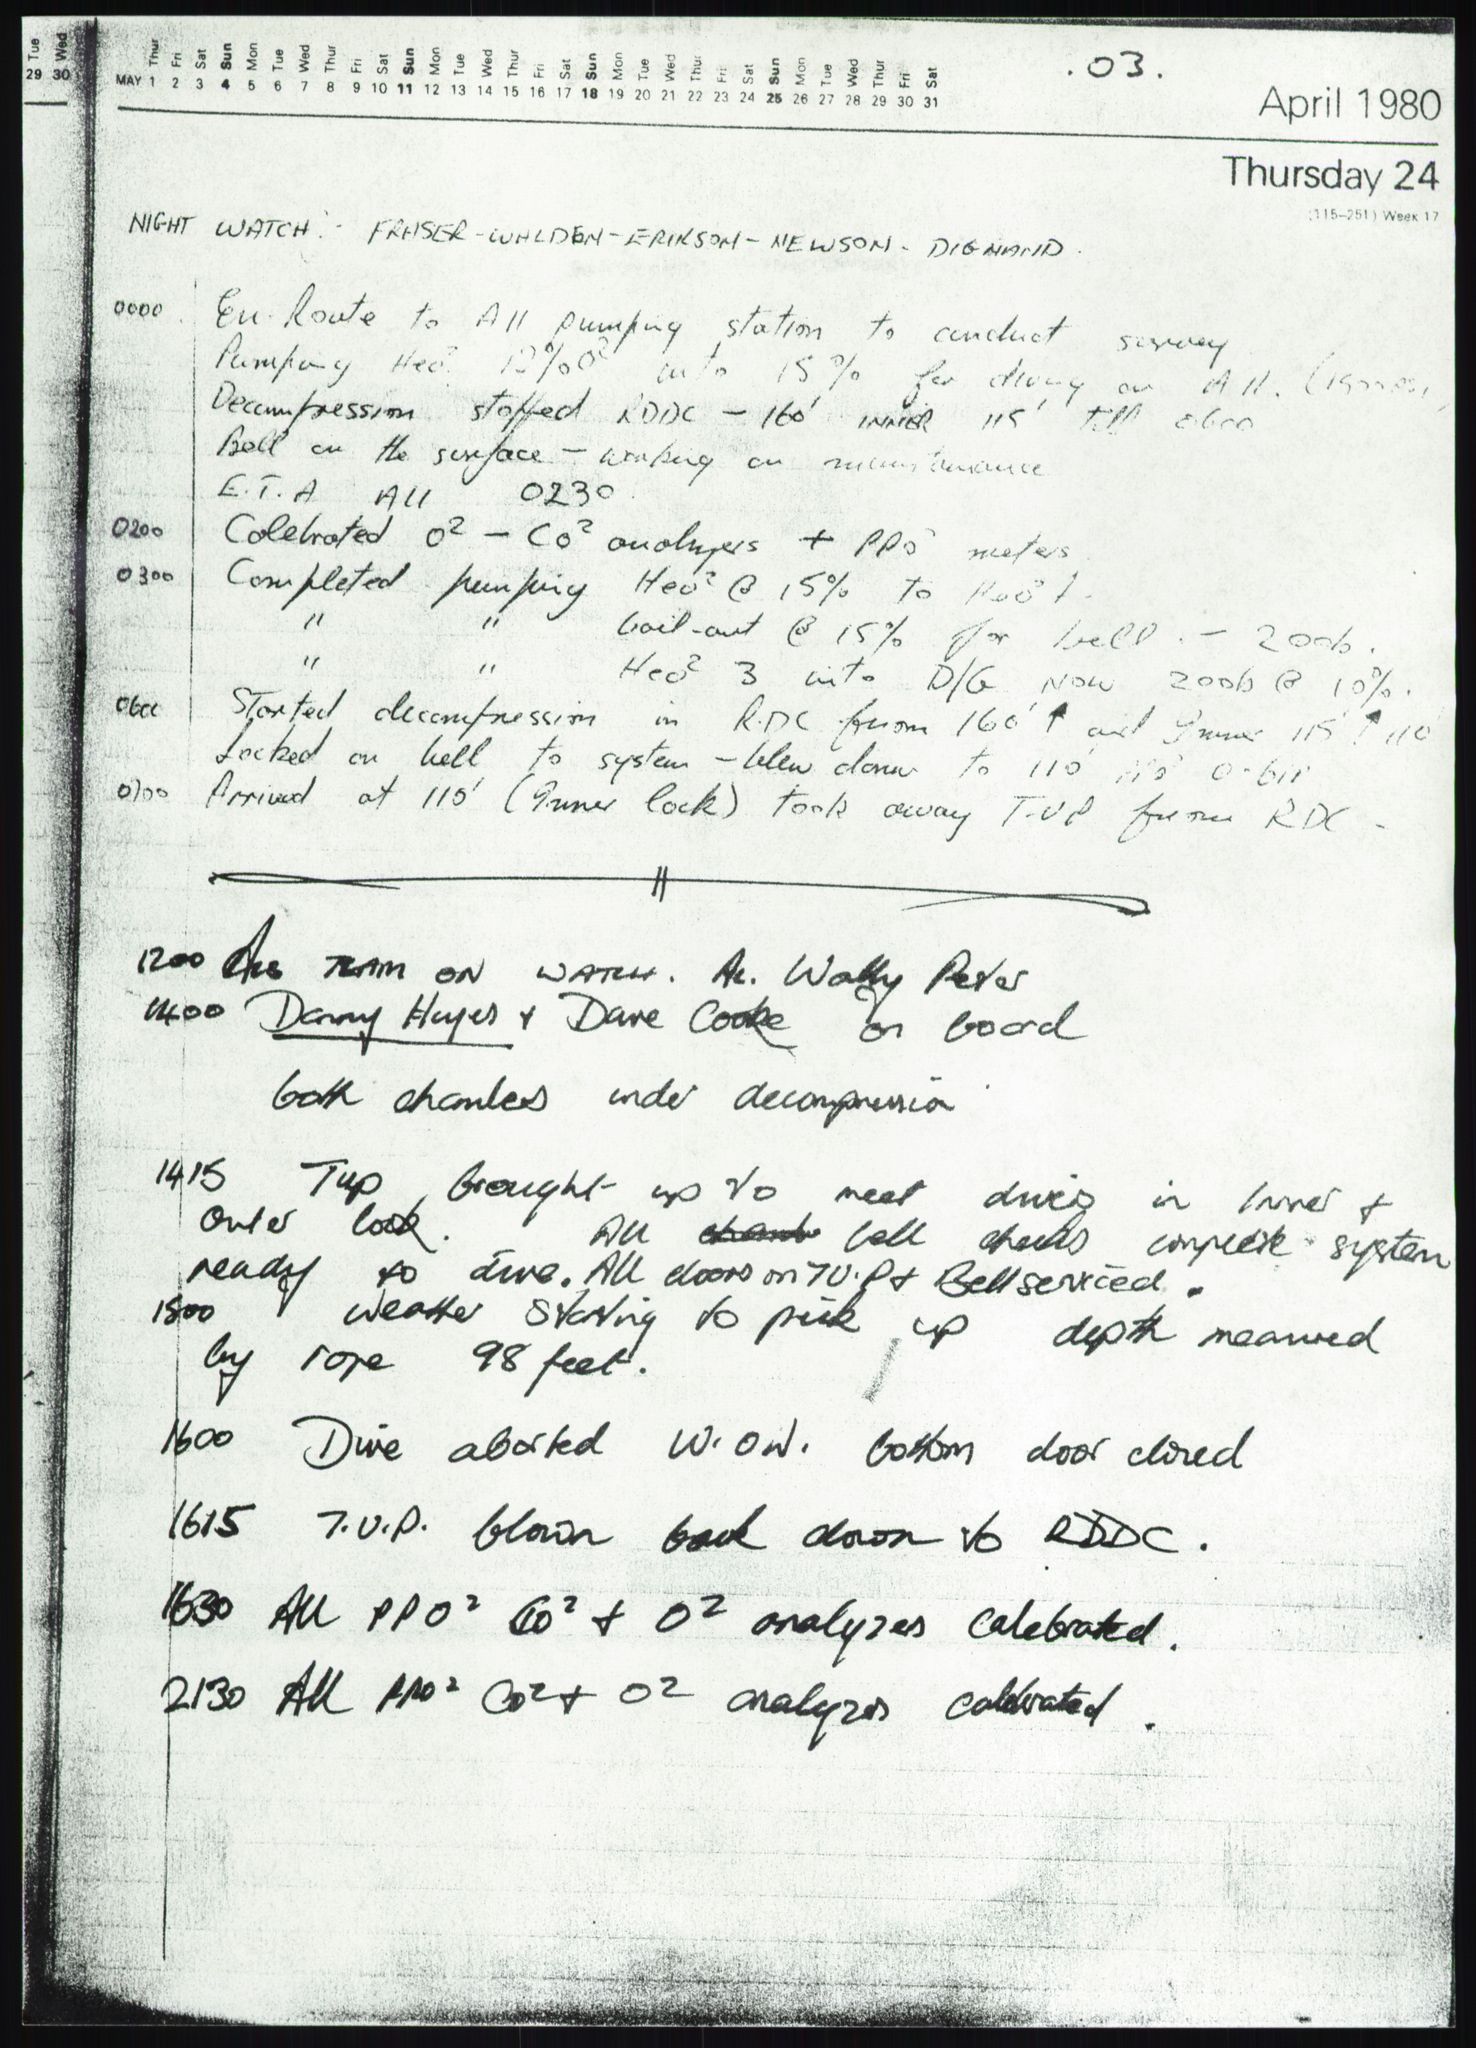 Tue Wed
29 30
Thur Fri Sat Sun Mon Tue Wed Thur Fri Sat Sun Mon Tue Wed Thur Fri Sat Sun Mon Tue Wed Thur Fri Sat Sun Mon Tue Wed Thur Fri Sat
MAY 1 2 3 4 5 6 7 8 9 10 11 12 13 14 15 16 17 18 19 20 21 22 23 24 25 26 27 28 29 30 31
.03.
April 1980
Thursday 24
(115–251) Week 17
NIGHT WATCH:- FRASER-WALDEN-ERIKSON-NEWSON-DIGNAND.
0000 En-Route to A11 pumping station to conduct survey
Pumping Heo² 12%O² into 15% for diving on A11.
Decompression stopped RDDC - 160' INNER 115' till 0600
Bell on the surface - working on maintanance
E.T.A A11 0230
0200 Calebrated O² - Co² analyers + PPO² meters
0300 Completed pumping Heo² @ 15% to Heo² 1.
" " bail-out @ 15% for bell. - 200b.
" " Heo² 3 into D/G NOW 200b @ 10%.
0600 Started decompression in R.D.C from 160' ↑ and Inner 115' ↑ 110'
Locked on bell to system - blew down to 110'
0700 Arrived at 110' (Inner lock) took away T-UP from RDC -
1200 TEAM ON WATCH. Wally Peter
1400 Danny Hayes + Dave Cooke on board
both chambers under decompression
1415 Tup brought up to meet divers in Inner +
outer lock. All bell checks complete system
ready to dive. All doors on T.U.P + Bell serviced.
1500 Weather starting to pick up depth measured
by rope 98 feet.
1600 Dive aborted W.O.W. bottom door closed
1615 T.U.P. blown back down to RDDC.
1630 All PPO² Co² + O² analyzes calebrated.
2130 All PPO² Co² + O² analyzes calebrated.